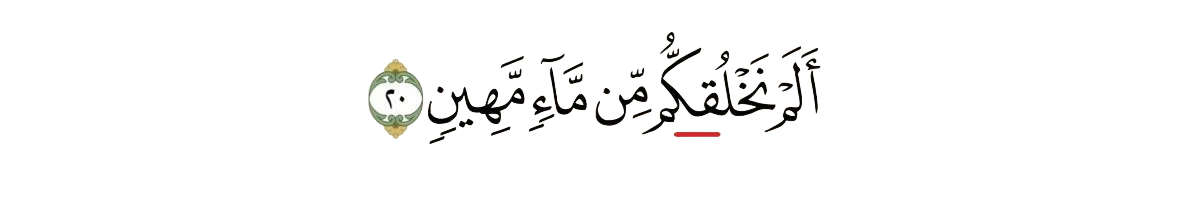 أَلَمۡ نَخۡلُقكُّم مِّن مَّآءٖ مَّهِينٖ ٢٠